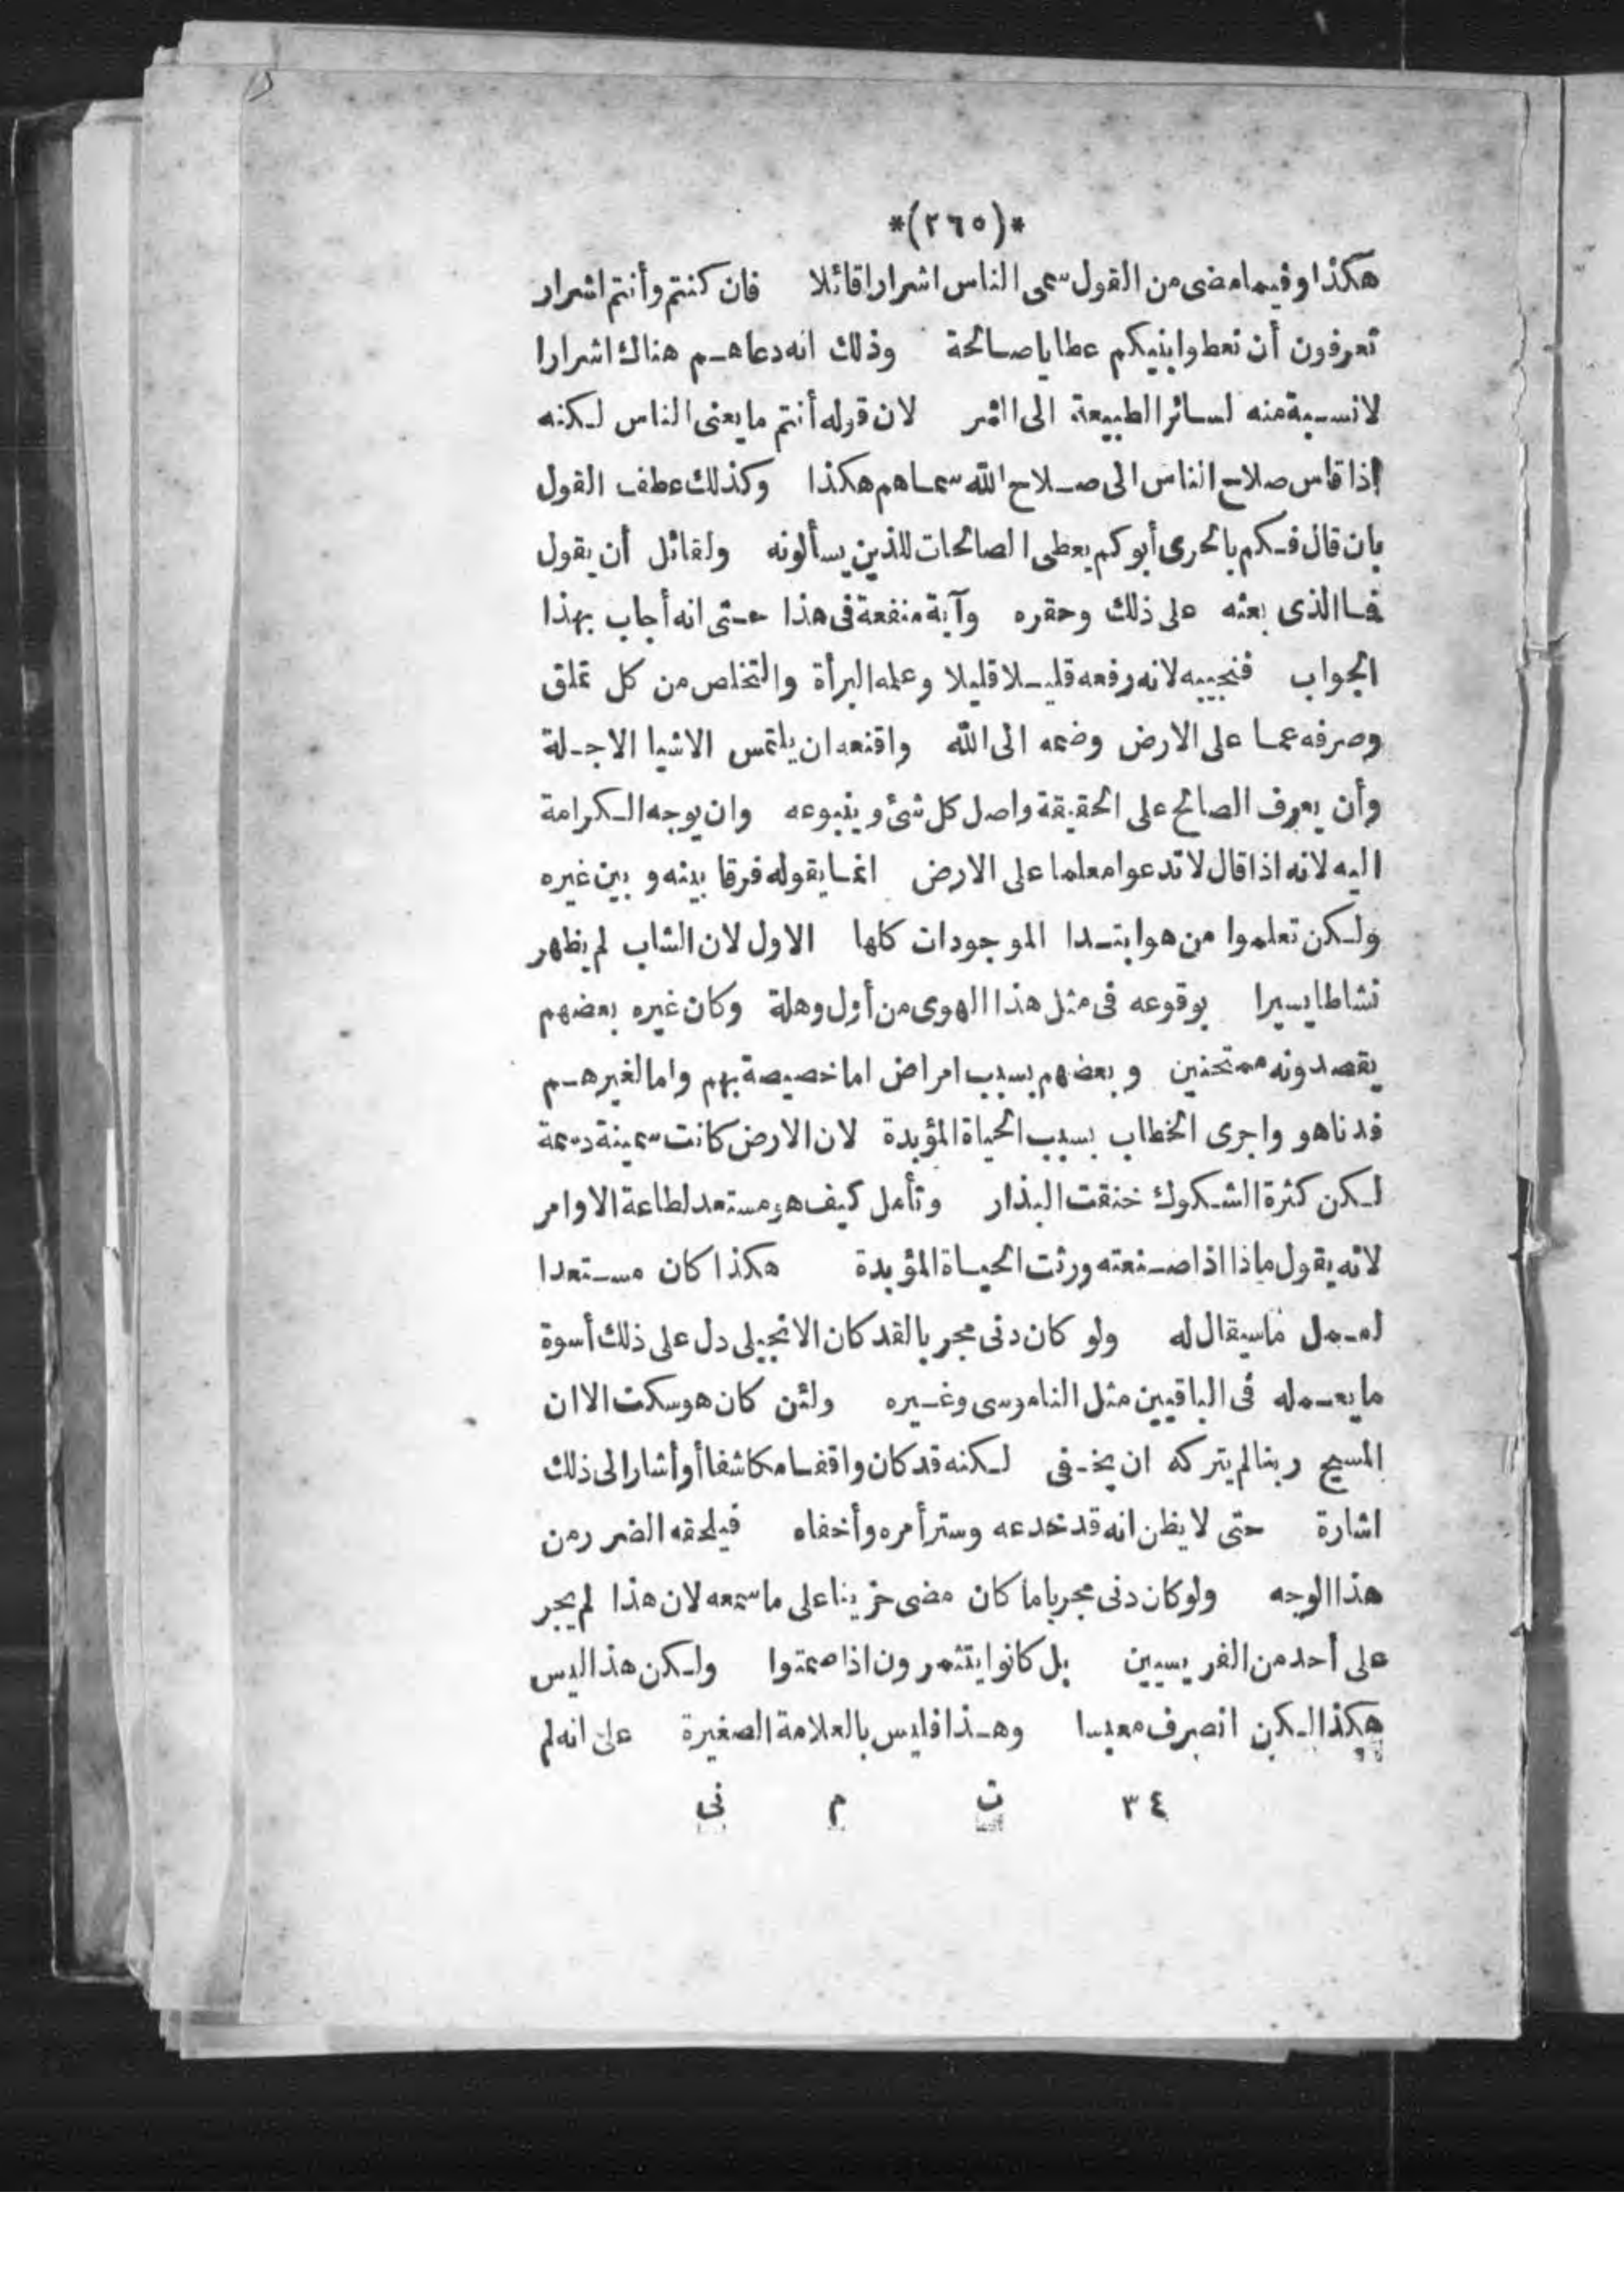 *(٢٦٥)*
هكذا وفيما مضى من القول سمى الناس اشرارا قائلا فان كنتم وأنتم اشرار
تعرفون أن تعطوا بنيكم عطايا صالحة وذلك انه دعاهم هناك اشرارا
لا نسبة منه لسائر الطبيعة الى الشر لان قوله أنتم ما يعنى الناس لكنه
اذا قاس صلاح الناس الى صلاح الله سماهم هكذا وكذلك عطف القول
بان قال فكم بالحرى أبوكم يعطى الصالحات للذين يسألونه ولقائل أن يقول
فما الذى بعثه على ذلك وحقره وآية منفعة فى هذا حتى انه أجاب بهذا
الجواب فنجيبه لانه رفعه قليلا قليلا وعلمه البرأة والتخلص من كل تملق
وصرفه عما على الارض وضمه الى الله واقنعه ان يلتمس الاشيا الاجلة
وأن يعرف الصالح على الحقيقة واصل كل شئ وينبوعه وان يوجه الكرامة
اليه لانه اذا قال لا تدعوا معلما على الارض انما يقوله فرقا بينه و بين غيره
ولكن تعلموا من هو ابتدا الموجودات كلها الاول لان الشاب لم يظهر
نشاطا يسيرا بوقوعه فى مثل هذا الهوى من أول وهلة وكان غيره بعضهم
يقصدونه ممتحنين و بعضهم بسبب امراض اما خصيصة بهم واما لغيرهم
فدنا هو واجرى الخطاب بسبب الحياة المؤبدة لان الارض كانت سمينة دسمة
لكن كثرة الشكوك خنقت البذار وتأمل كيف هو مستعد لطاعة الاوامر
لانه يقول ماذا اذا صنعته ورثت الحياة المؤبدة هكذا كان مستعدا
لعمل ما سيقال له ولو كان دنى مجربا لقد كان الانجيلى دل على ذلك أسوة
ما يعمله فى الباقيين مثل الناموسى وغيره ولئن كان هو سكت الا ان
المسيح ربنا لم يتركه ان يخفى لكنه قد كان واقفا مكاشفا أو أشار الى ذلك
اشارة حتى لا يظن انه قد خدعه وستر أمره وأخفاه فيلحقه الضرر من
هذا الوجه ولو كان دنى مجربا ما كان مضى حزينا على ما سمعه لان هذا لم يجر
على أحد من الفريسيين بل كانوا يتنمرون اذا صمتوا ولكن هذا ليس
هكذا لكن انصرف معبسا وهذا فليس بالعلامة الصغيرة على انه لم
٣٤ ت م نى